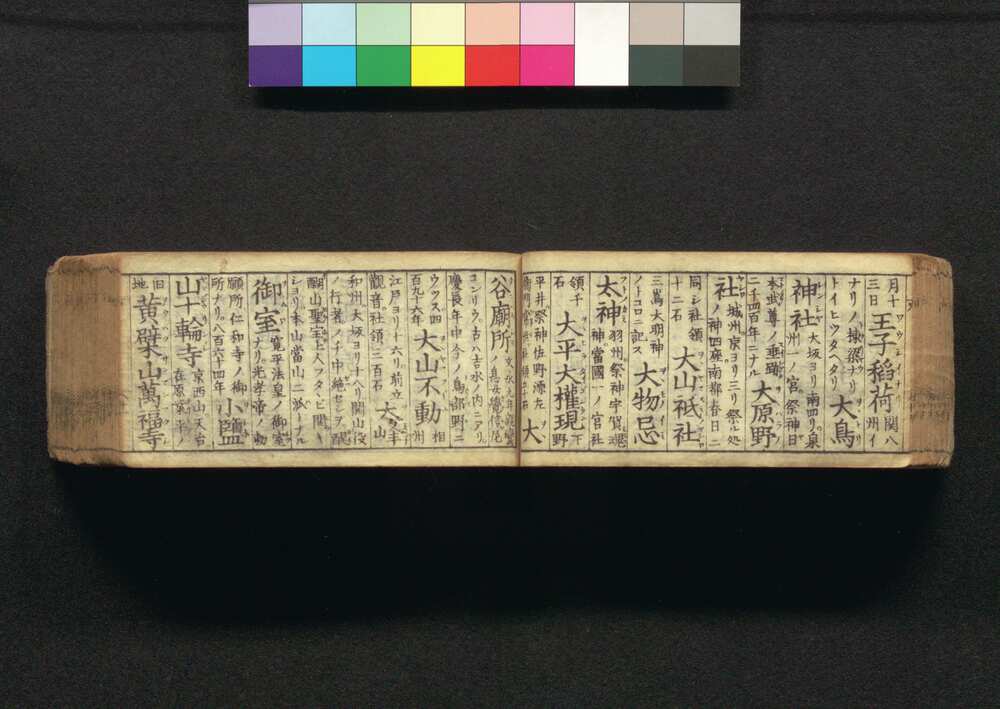 月十三日 王子稲荷 関八州イ
ナリノ棟梁ナリトイヒツタヘタリ 大鳥
神社 大坂ヨリ南四リ泉州一ノ宮祭神日
本武尊ノ垂跡二千四百年ニナル 大原野
社 城州京ヨリ三リ祭ル処ノ神四座南都春日ニ
同シ社領十二石 大山祇社
三嶌大明神ノトコロニ記ス 大物忌
太神 羽州祭神宇賀魂神當國一ノ宮社
領千石 大平大権現 下野
平井祭神佐野源左 大
谷廟所
コンリウ古ハ吉水ノ内ニアリ慶長年中今ノ鳥部野ニ
ウツス四百九十六年 大山不動 相州
江戸ヨリ十六リ前立観音社領三百石 大峯山
和州大坂ヨリ十八リ開山役ノ行者ノチ中絶セシヲ醍
醐山聖宝上人フタタヒ開キシヨリ本山當山二派トナル
御室 寛平法皇ノ御室ナリ光孝帝ノ勅
願所仁和寺ノ御所ナリ八百六十四年 小鹽
山十輪寺 京西山天台在原業平ノ
旧地 黄檗山萬福寺